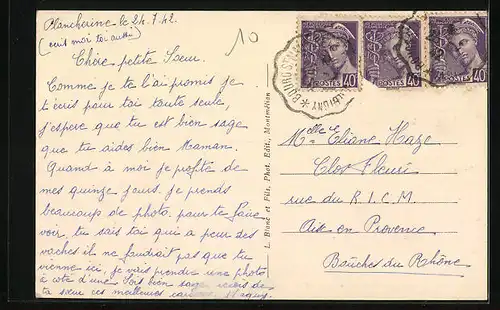 Plancherine le 24.7.42
(ecris moi toi aussi)
Chère petite Soeur.
Comme je te l'ai promis je
t'écris pour toi toute seule,
j'espère que tu est bien sage
que tu aides bien Maman.
Quand à moi je profite de
mes quinze jours. je prends
beaucoup de photo. pour te faire
voir, tu sais toi qui a peur des
vaches il ne faudrait pas que tu
vienne ici, je vais prendre une photo
à côte d'une. Sois bien sage reçois de
ta soeur ces meilleures
10
L. Blanc et Fils, Phot. Edit., Montmélian
BOURG ST
POSTES 40
POSTES 40
POSTES 40
Melle Eliane Haze
Clos Fleuri
rue du R.I.C.M.
Aix en Provence
Bouches du Rhône